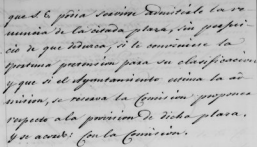 que S. E. podia servirse admitirle la re
nuncia de la citada plaza, sin perjui
cio de que deduzca, si le conviniese la
oportuna pretension para su clasificacion
y que si el Ayuntamiento opina la ad
mision, se reserva la Comision proponer
respecto a la provision de dicha plaza.
y se acordó: Con la Comision.